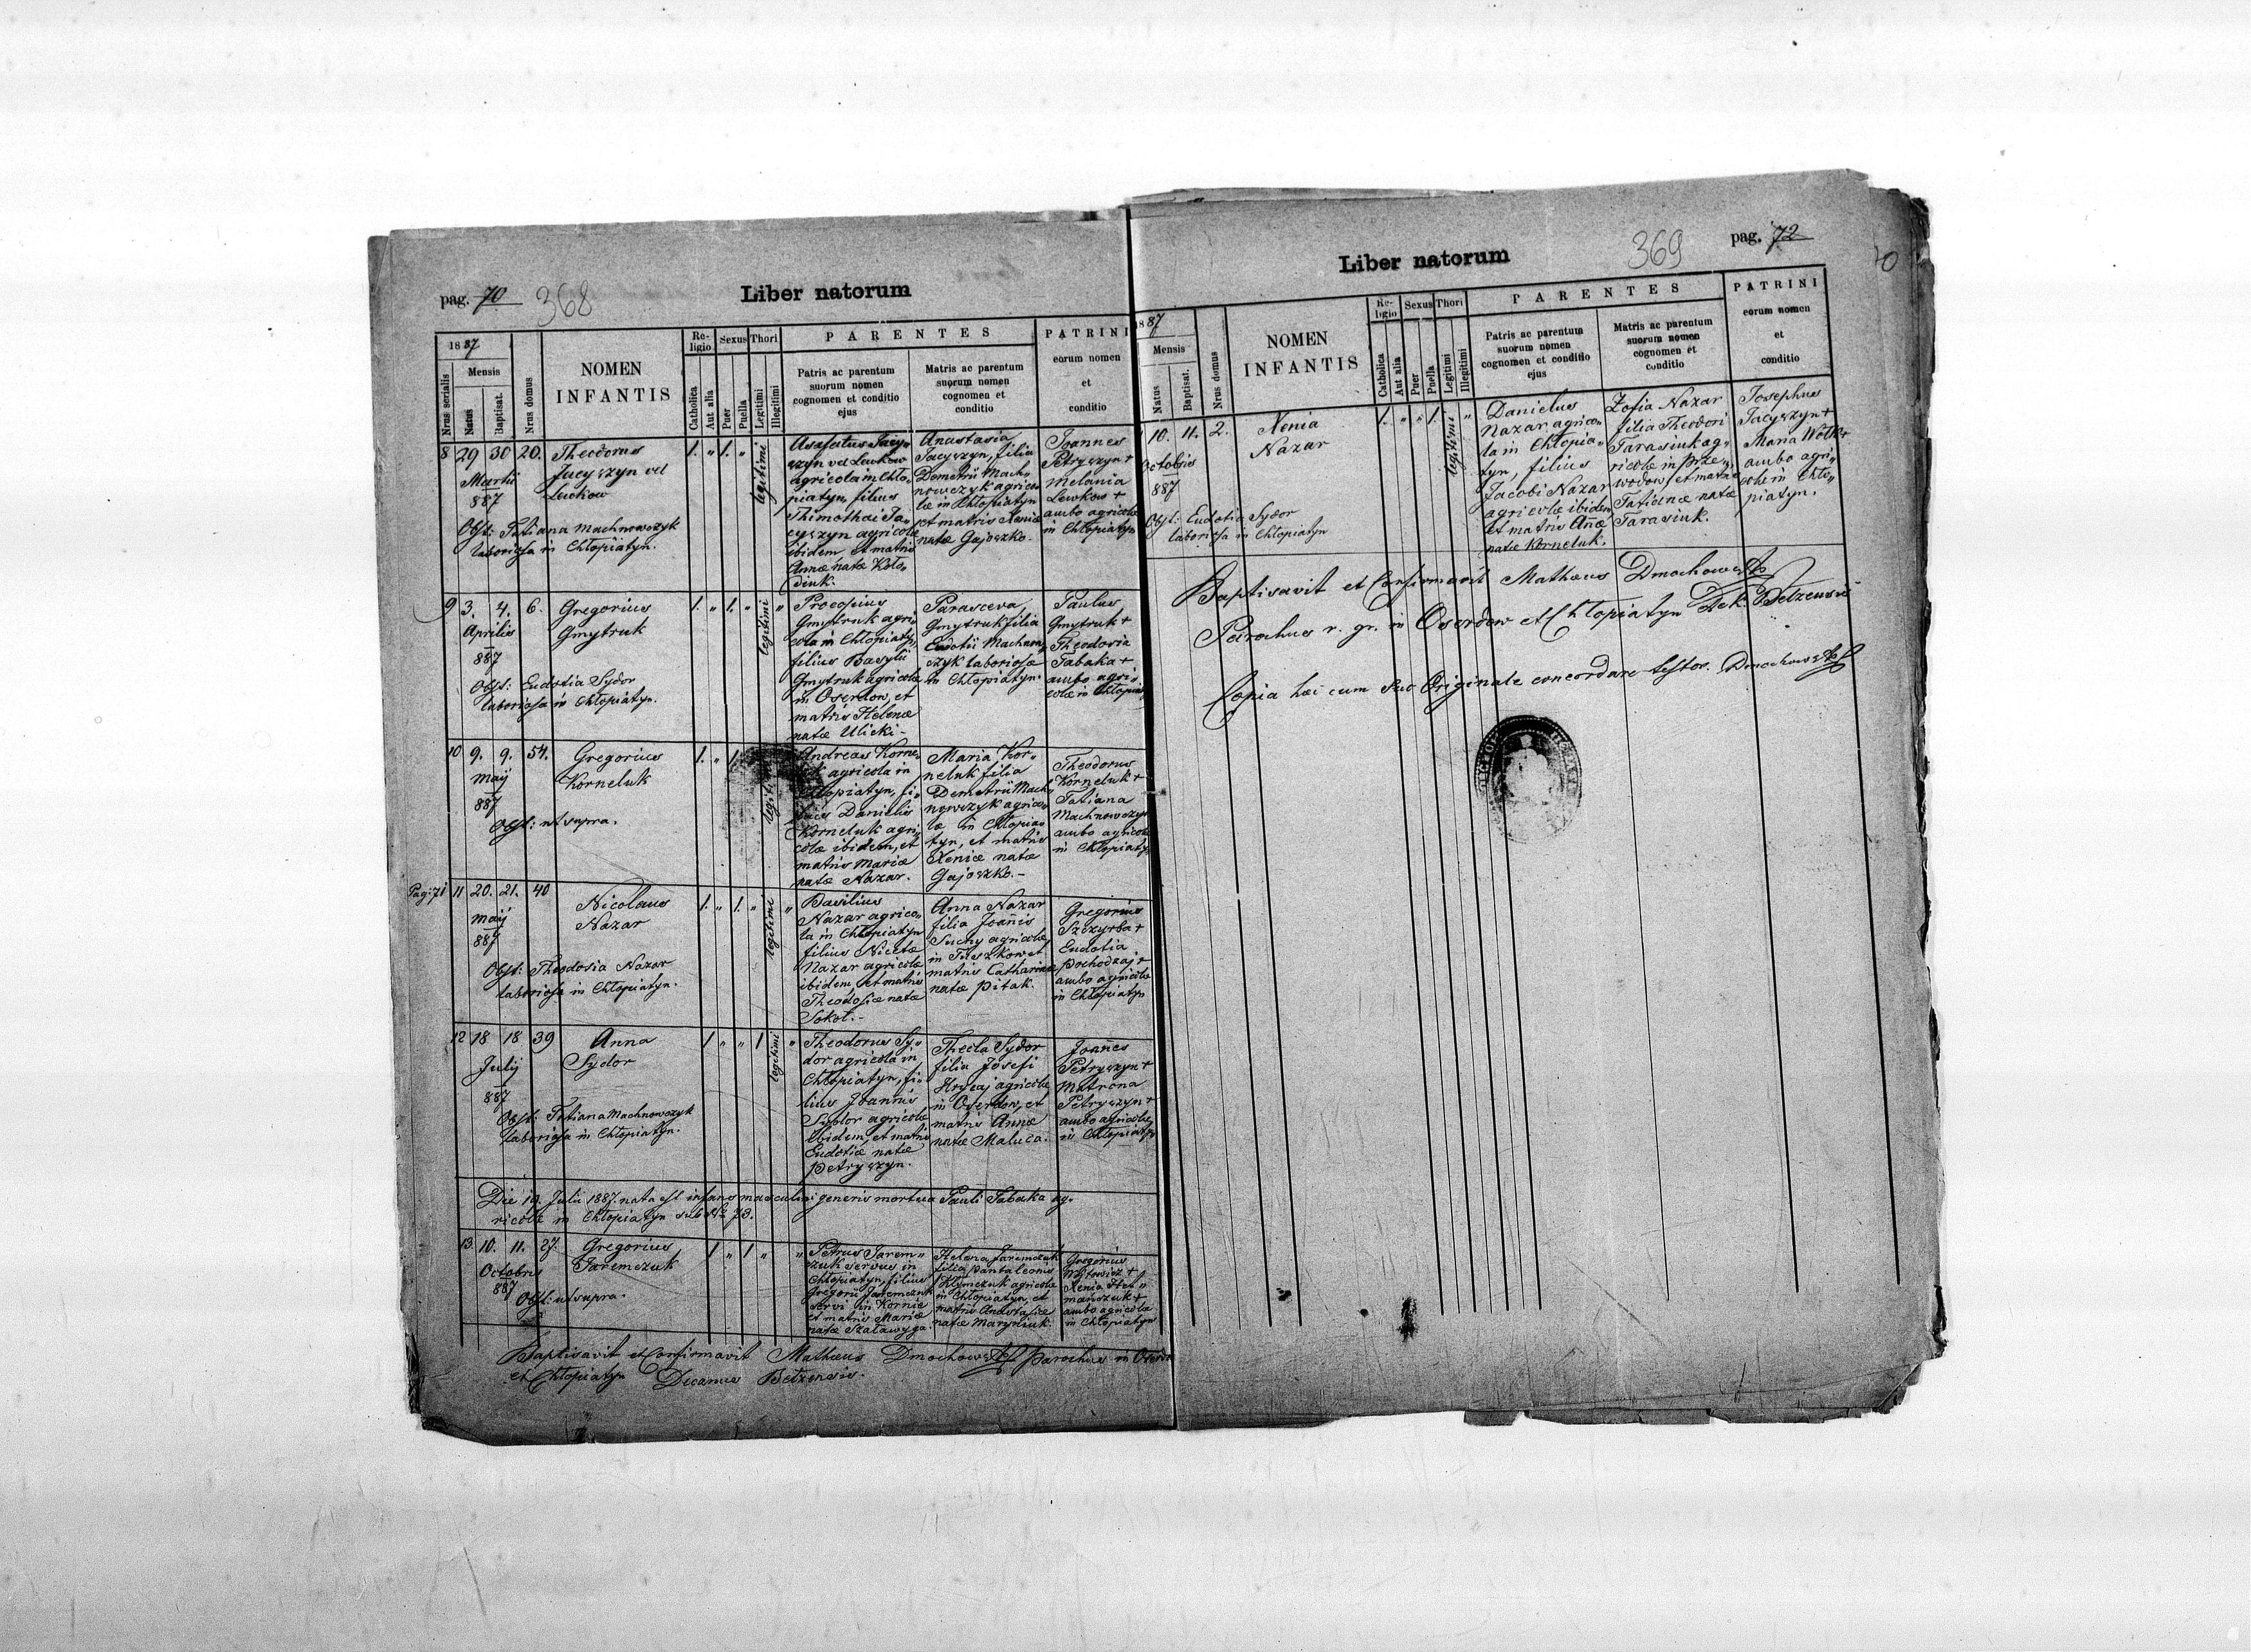 pag. 70 368
Liber natorum
1887
Nrus serialis
Mensis
Natus
Baptisat.
Nrus domus
NOMEN
INFANTIS
Religio
Catholica
Aut alia
Sexus
Puer
Puella
Thori
Legitimi
Illegitimi
PARENTES
Patris ac parentum
suorum nomen
cognomen et conditio
ejus
Matris ac parentum
suorum nomen
cognomen et
conditio
PATRINI
eorum nomen
et
conditio
8 29 30 20. Theodorus
Jacyszyn vel
Luckow
Martii
887
Obst: Tatiana Machnowczyk
laboriosa in Chłopiatyn.
1. „ 1. „ legitimi
Asafatus Jacy„
szyn vel Luckow
agricola in Chło„
piatyn, filius
Thimothæi Ja„
cyszyn agricolæ
ibidem, et matris
Annæ natæ Koło„
diuk.
Anastasia
Jacyszyn, filia
Demetrii Mach„
nowczyk agrico„
læ in Chłopiatyn
et matris Xeniæ
natæ Gajoszko.
Joannes
Petryszyn +
Melania
Lewkow +
ambo agricolæ
in Chłopiatyn
9 3. 4. 6. Gregorius
Gmytruk
Aprilis
887
Obst: Eudotia Sydor
laboriosa in Chłopiatyn.
1. „ 1. „ legitimi „
Procopius
Gmytruk agri„
cola in Chłopiatyn,
filius Basylii
Gmytruk agricolæ
in Oserdow, et
matris Helenæ
natæ Ulicki -
Parasceva
Gmytruk filia
Eudotii Machnow„
czyk laboriosæ
in Chłopiatyn.
Paulus
Gmytruk +
Theodosia
Tabaka +
ambo agri„
colæ in Chłopiatyn
10 9. 9. 54. Gregorius
Korneluk
Maij
887
Obst: ut supra.
1. „ 1. legitimi
Andreas Korne„
luk agricola in
Chłopiatyn, fi„
lius Danielis
Korneluk agri„
colæ ibidem, et
matris Mariæ
natæ Nazar.
Maria Kor„
neluk filia
Demetrii Mach„
nowczyk agrico„
læ in Chłopia„
tyn, et matris
Xeniæ natæ
Gajoszko.-
Theodorus
Korneluk +
Tatiana
Machnowczyk
ambo agricolæ
in Chłopiatyn
Pag: 71 11 20. 21. 40 Nicolaus
Nazar
Maij
887
Obst: Theodosia Nazar
laboriosa in Chłopiatyn.
1. „ 1. „ legitimi „
Basilius
Nazar agrico„
la in Chłopiatyn
filius Nicetæ
Nazar agricolæ
ibidem, et matris
Theodosiæ natæ
Sokoł.-
Anna Nazar
filia Joañis
Suchy agricolæ
in Tuszkow et
matris Catharinæ
natæ Pitak.
Gregorius
Szczyrba +
Eudotia
Pochodzaj +
ambo agricolæ
in Chłopiatyn
12 18 18 39 Anna
Sydor
Julij
887
Obst: Tatiana Machnowczyk
laboriosa in Chłopiatyn.
1 „ „ 1 legitimi „
Theodorus Sy„
dor agricola in
Chłopiatyn, fi„
lius Joannis
Sydor agricolæ
ibidem, et matris
Eudotiæ natæ
Petryszyn.
Thecla Sydor
filia Josefi
Hrycaj agricolæ
in Oserdow, et
matris Annæ
natæ Maluca.
Joañes
Petryszyn +
Matrona
Petryszyn +
ambo agricolæ
in Chłopiatyn
Die 19. Julii 1887. nata est infans masculini generis mortua Pauli Tabaka ag„
ricolæ in Chłopiatyn sub Nro 73.
13. 10. 11. 27. Gregorius
Jaremczuk
Octobris
887
Obst: ut supra.
1 „ 1 „ „
Petrus Jarem„
czuk servus in
Chłopiatyn, filius
Gregorii Jaremczuk
servi in Kornie
et matris Mariæ
natæ Szaławyga.
Helena Jaremczuk
filia Pantaleonis
Klymczuk agricolæ
in Chłopiatyn, et
matris Anastasiæ
natæ Maryniuk.
Gregorius
Wojtowicz +
Xenia
ambo agricolæ
in Chłopiatyn
Baptisavit et Confirmavit Mathæus Dmochowski Parochus in Oserdow
et Chłopiatyn Decanus Bełzensis.
Liber natorum
369 pag. 72
70
1887
Mensis
Natus
Baptisat.
Nrus domus
NOMEN
INFANTIS
Religio
Catholica
Aut alia
Sexus
Puer
Puella
Thori
Legitimi
Illegitimi
PARENTES
Patris ac parentum
suorum nomen
cognomen et conditio
ejus
Matris ac parentum
suorum nomen
cognomen et
conditio
PATRINI
eorum nomen
et
conditio
10. 11. 2. Xenia
Nazar
Octobris
887
Obst: Eudotia Sydor
laboriosa in Chłopiatyn
1. „ „ 1. legitimi „
Danielus
Nazar agrico„
la in Chłopia„
tyn, filius
Jacobi Nazar
agricolæ ibidem
et matris Añæ
natæ Korneluk.
Zofia Nazar
filia Theodori
Tarasiuk ag„
ricolæ in Prze„
wodow, et matris
Tatianæ natæ
Tarasiuk.
Josephus
Jacyszyn +
Maria Wołk +
ambo agri„
colæ in Chło„
piatyn.
Baptisavit et Confirmavit Mathæus Dmochowski
Parochus r. gr. in Oserdow et Chłopiatyn Dek. Bełzensis
Copia hæc cum suo Originale concordare testor. Dmochowski